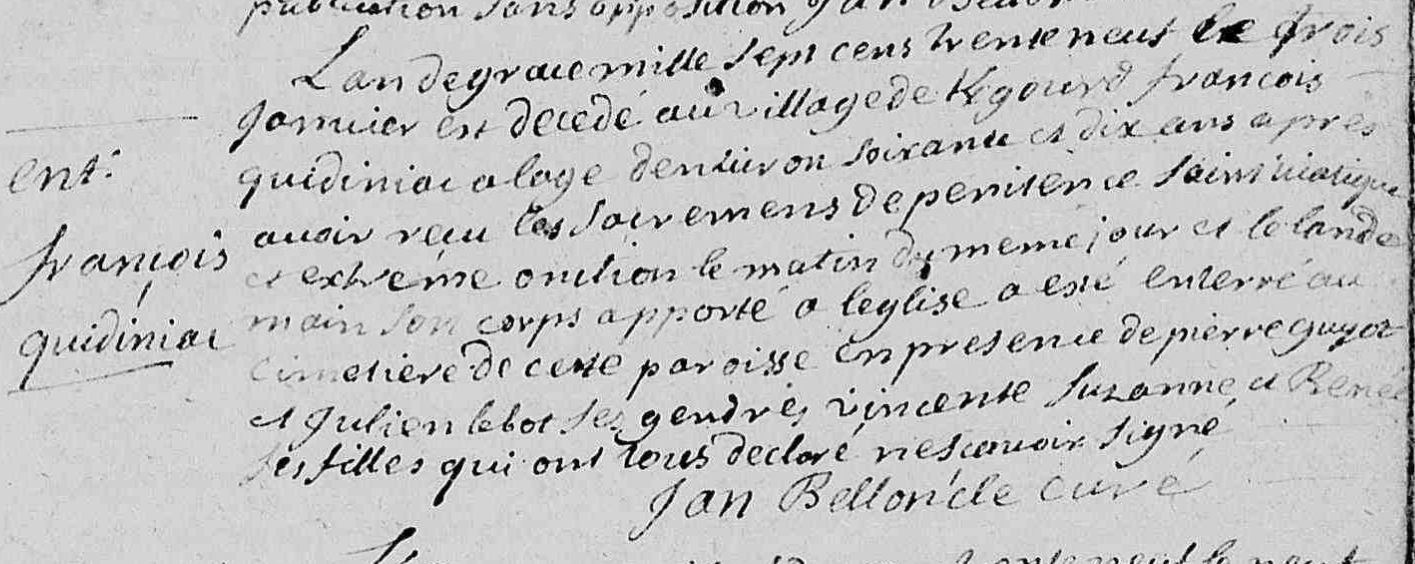 publication sans opposition
Lan de grace mille sept cens trente neuf le trois
janvier est decedé au village de Kgourd francois
quidiniac a lage denviron soixante et dix ans apres
avoir reçu les sacremens de penitence saint viatique
et extréme onction le matin du meme jour et le lande
main son corps apporté a leglise a esté enterré au
cimetiere de cette paroisse en presence de pierre guyot
et Julien lebot ses gendres vincente Suzanne et Renée
ses filles qui ont tous declaré ne scavoir signé
Jan Bellon cle curé
ent.
françois
quidiniac
trente neuf le neuf